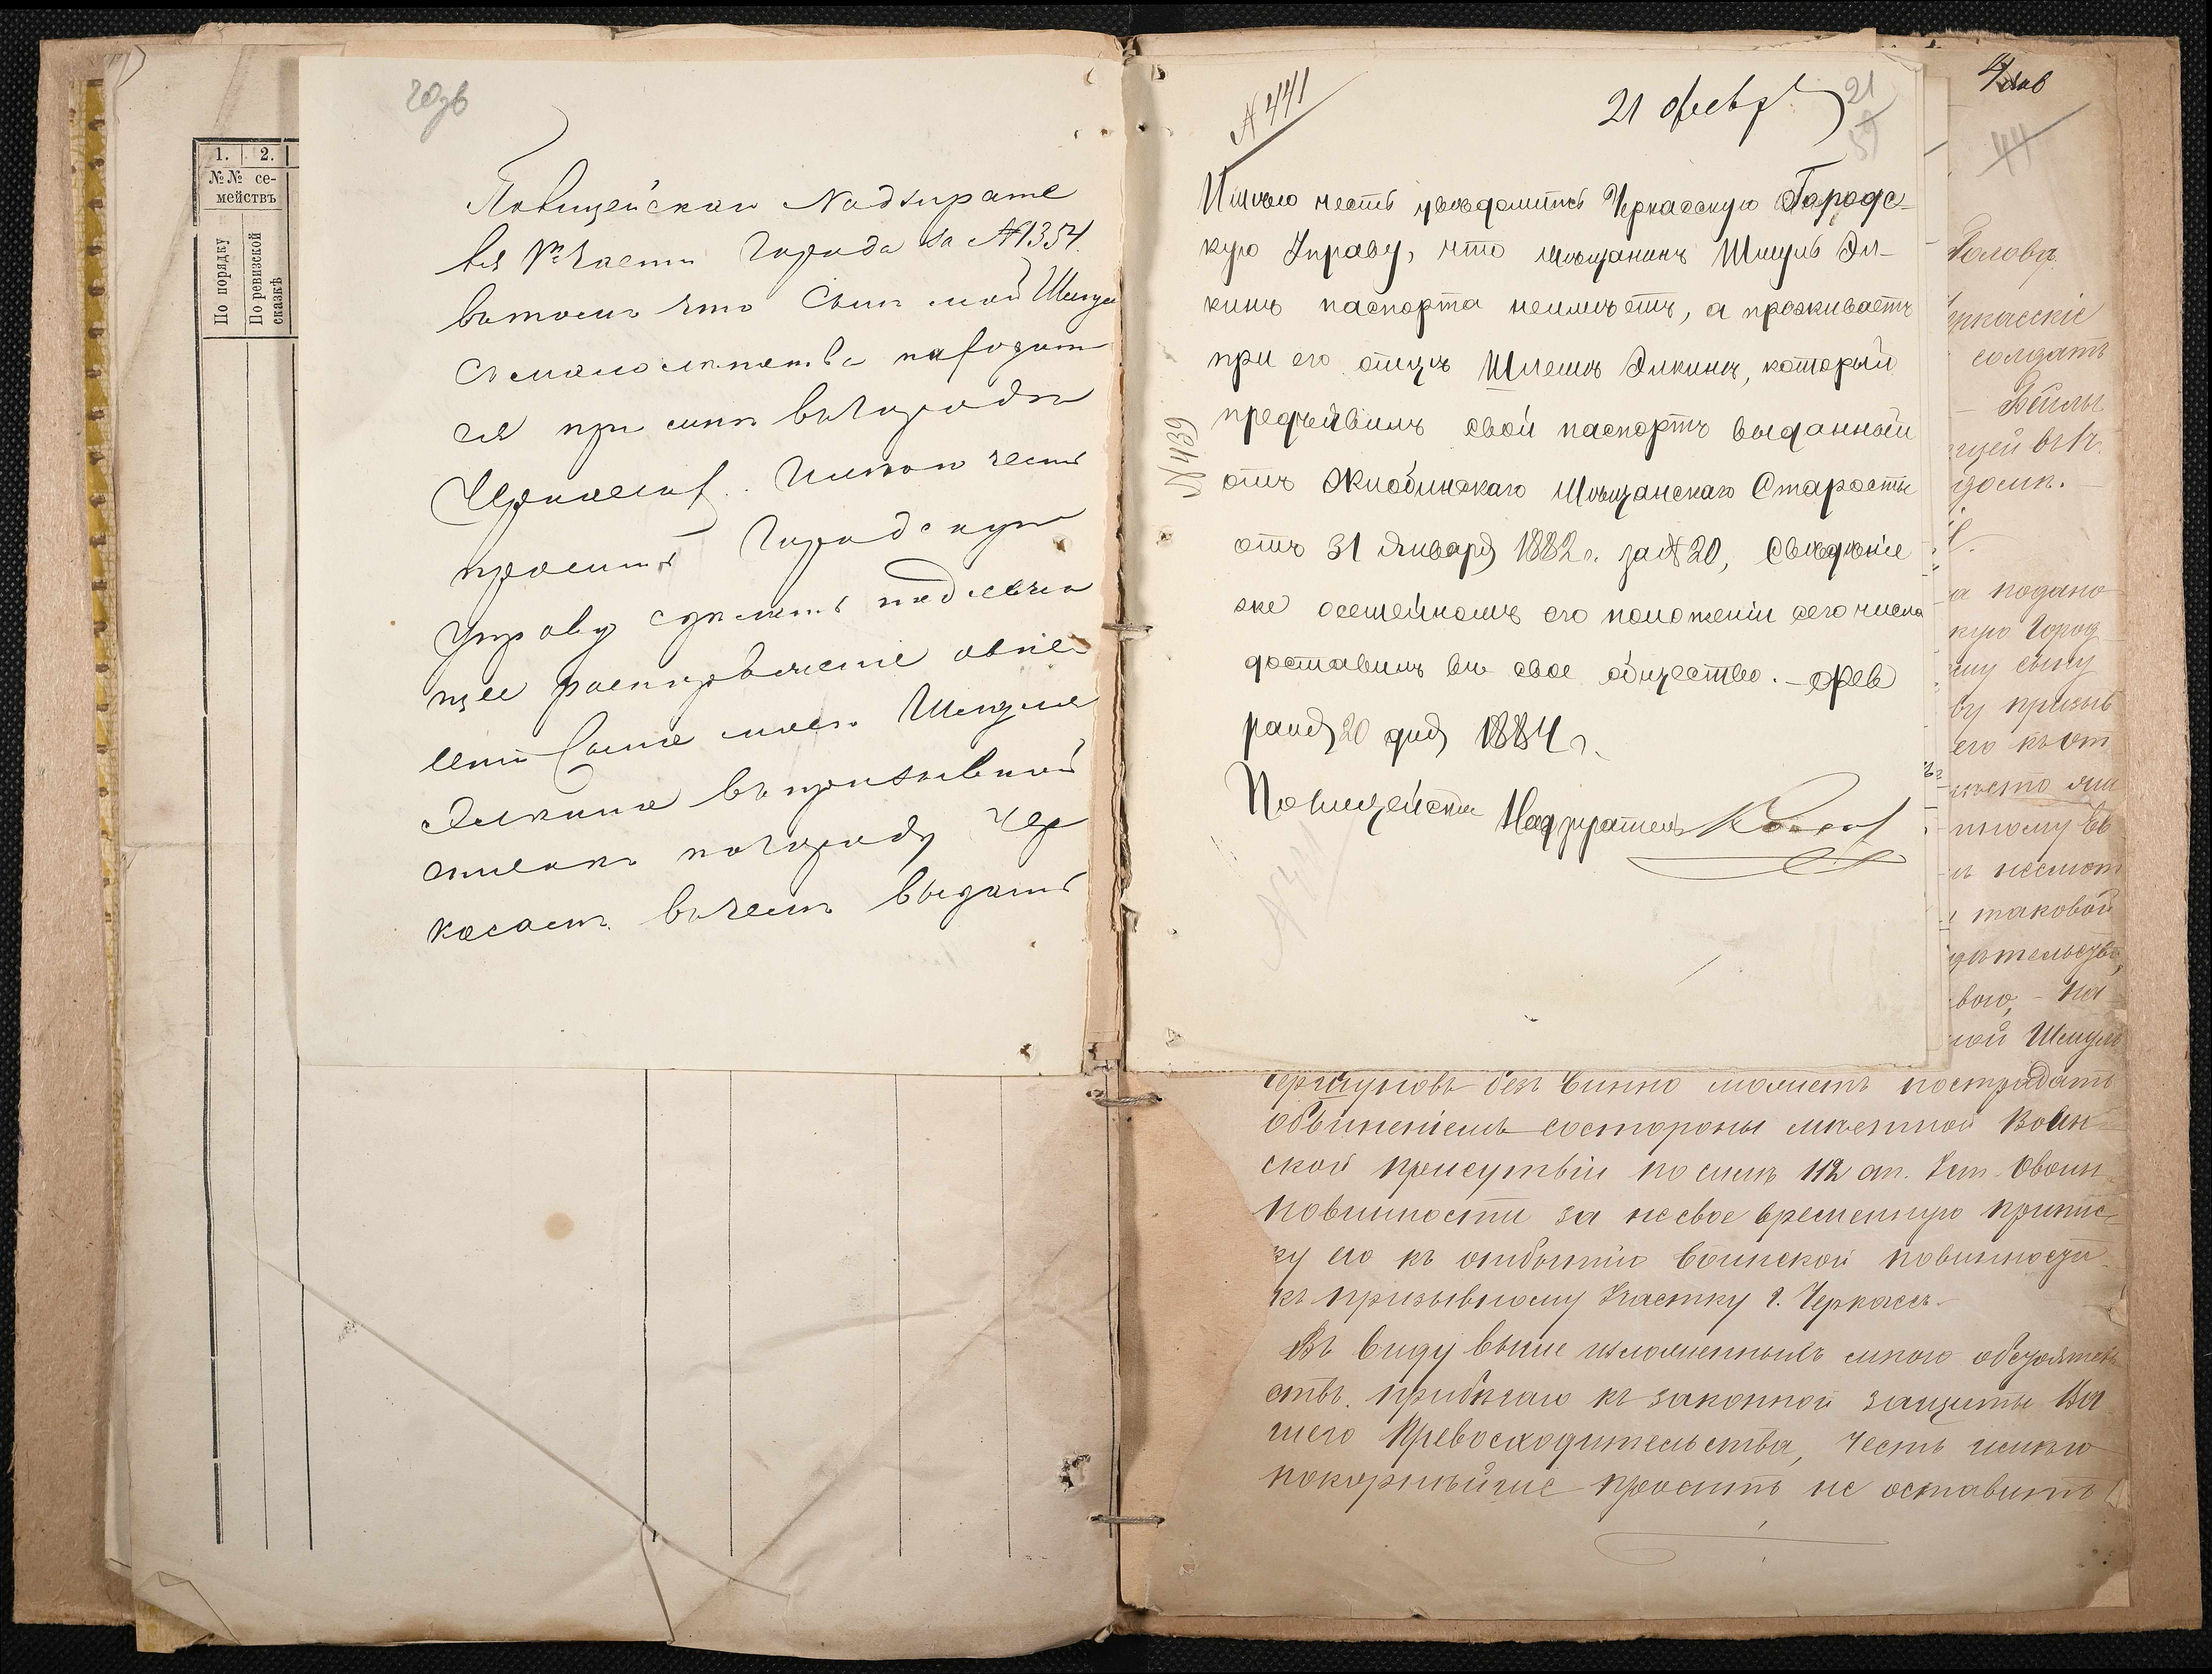 20зв
1. 2.
№№ се-
мействъ
По порядку
По ревизской
сказкѣ
Полицейскаго Надзирате
ля части Города за №1354.
вътомъ что Сынъ мой Шмуль
съмалолѣтства находит
ся при мнѣ въгородѣ
Черкассах. Имѣю честь
просить Городскую
Управу сдѣлать надлежа
щее распоряженіе овне
сеніи Сына моего Шмуля
Элкина въпризывной
списокъ погороду Чер
касамъ въчемъ выдать
№ 441
21 февр
21
59
№ 439
Имѣю честь увѣдомить Черкасскую Городс-
кую Управу, что мѣщанинъ Шмуль Эл-
кинъ паспорта неимѣетъ, а проживаетъ
при его отцѣ Шлемѣ Элкинѣ, который
предъявилъ свой паспортъ выданный
отъ Жлобинскаго Мѣщанскаго Старосты
отъ 31 Января 1882 г. за № 20, Свѣдѣніе
же осемейномъ его положеніи сего числа
доставилъ въ свое общество. - Фев
раля 20 дня 1884 г.
Полицейскій Надзиратель
44
Голова
солдатъ
а подано
кую Город
му сыну
ву призыв
его къ от
несмот
и таковой
вого, - На
мой Шмуль
безъ винно можетъ пострадать
обвиненіемъ состороны мѣстной Воин
ской присутвіи по силѣ 112 ст. Уст. Овоин.
повинности за несвое временную припис
ку его къ отбытію воинской повинности
къ призывному Участку г. Черкассъ.
Въ виду выше изложенныхъ мною обстоятель
ствъ. прибѣгаю къ законной защиты Ва
шего Превосходительства, честь имѣю
покорнѣйше просить не оставить